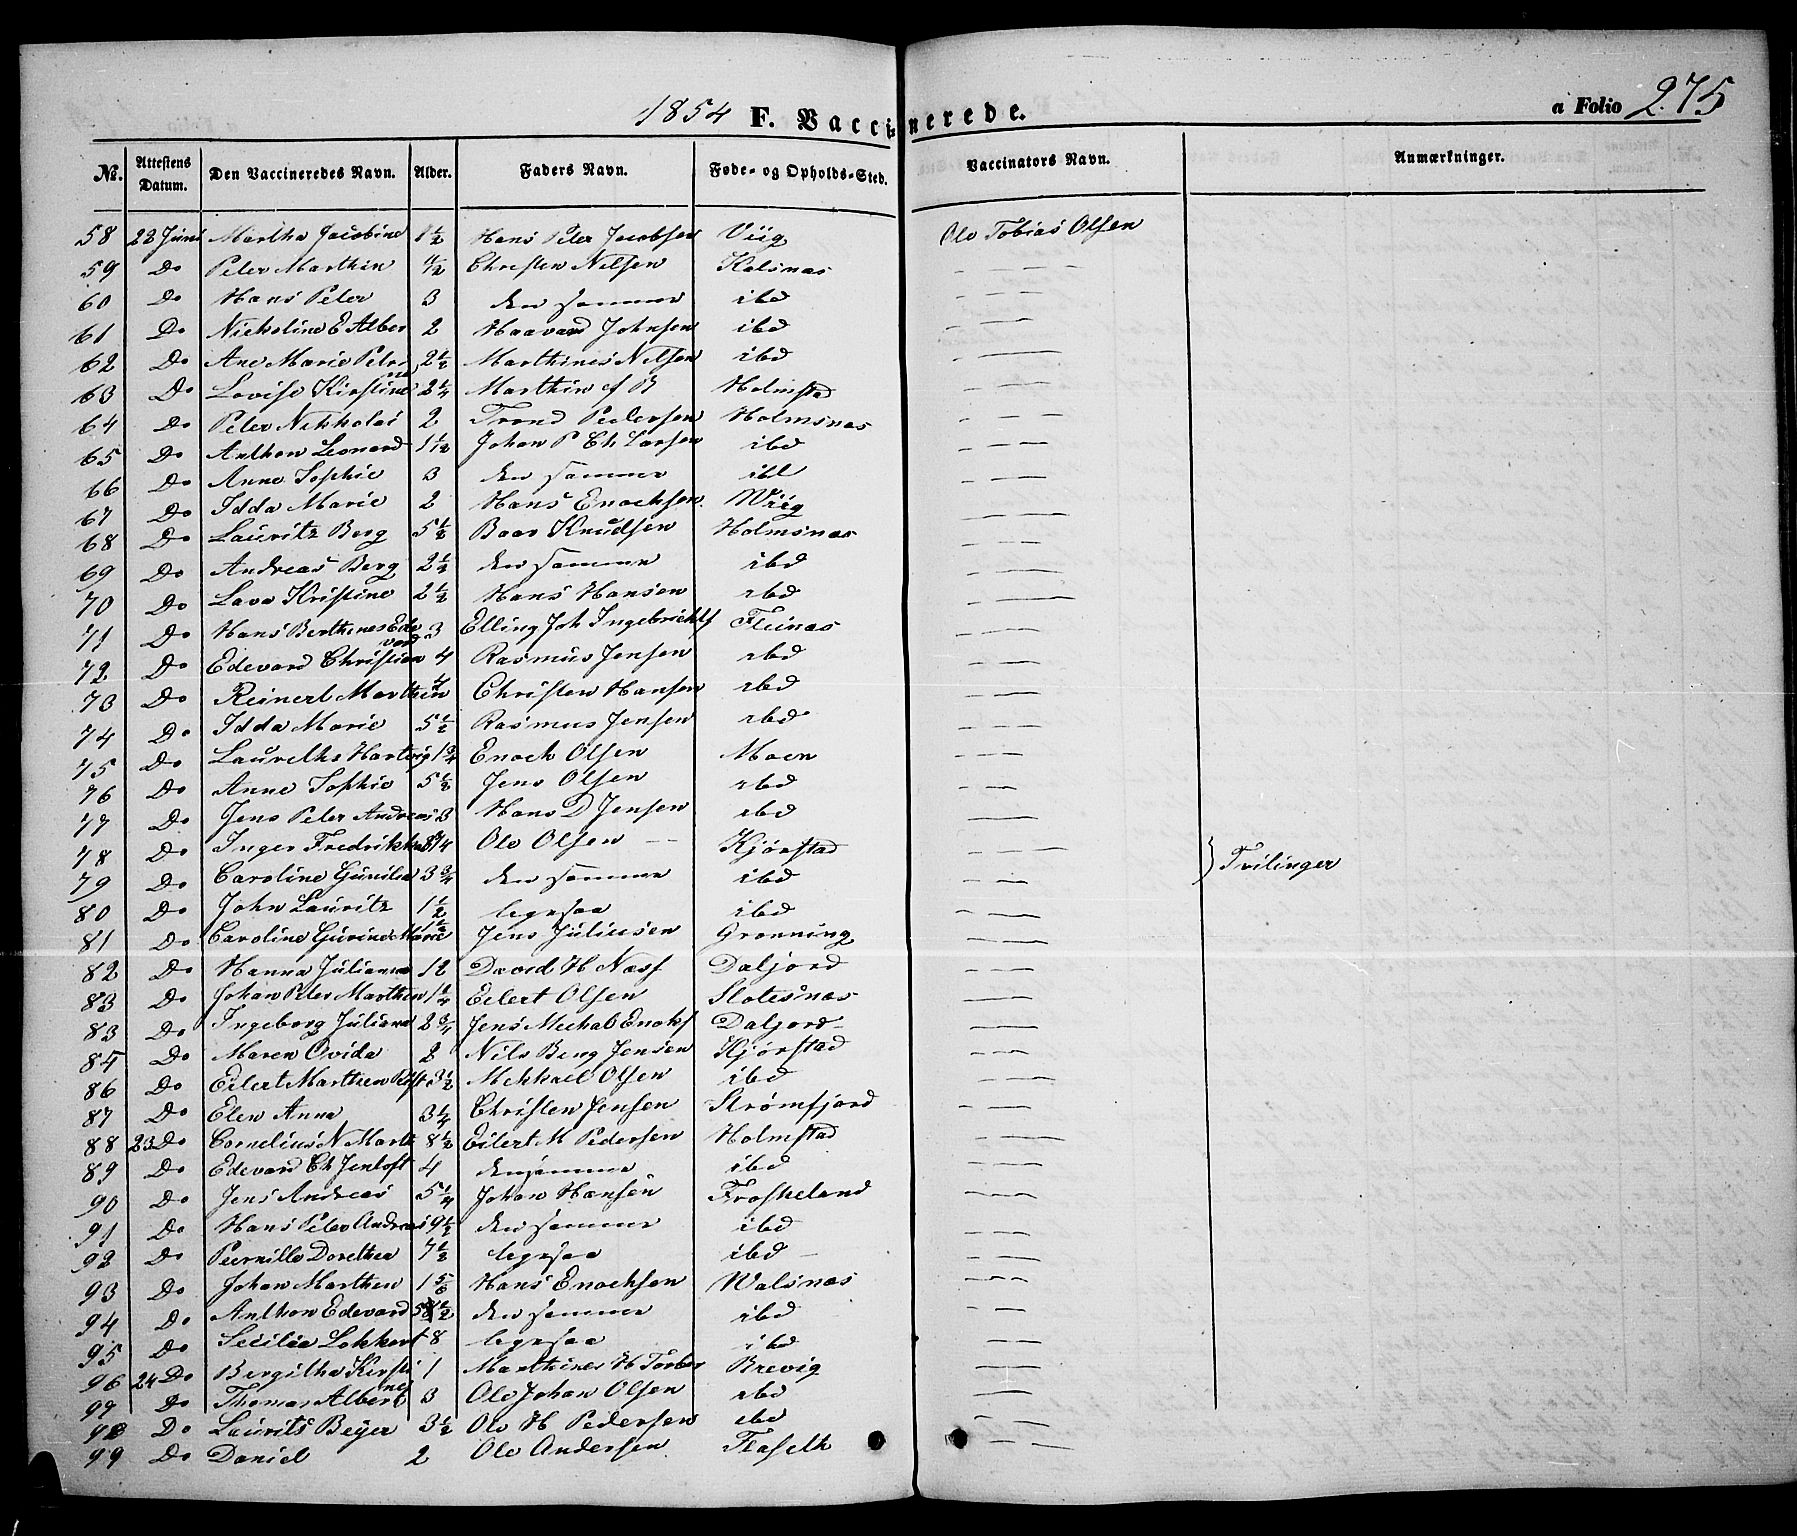 1854 F. Vaccinerede. a Folio 275
No. Attestens Datum. Den Vaccineredes Navn. Alder. Faders Navn. Føde- og Opholds-Sted. Vaccinators Navn. Anmærkninger.
58 22 Juni Martha Jacobine 1½ Hans Peter Jacobsen Viig Ole Tobias Olsen
59 Do Peter Marthin ½ Christen Nilsen Kalsnas — — —
60 Do Hans Peter 3 den samme ibd — — —
61 Do Nicholine E Alber 2 Haavard Johnsen ibd — — —
62 Do Ane Marie Petri ne 2½ Marthines Nilsen ibd — — —
63 Do Lovise Kirstine 2¼ Marthin Holmstad — — —
64 Do Peter Nikholai 2 Trond Pedersen Holmsnas — — —
65 Do Anthon Leonard 1½ Johan P Ch Larsen ibd — — —
66 Do Anne Sophie 3 den samme ibd — — —
67 Do Idda Marie 2 Hans Enochsen Wiig — — —
68 Do Lauritz Berg 5½ Baar Knudsen Holmsnas — — —
69 Do Andreas Berg 2½ den samme ibd — — —
70 Do Lava Kristine 2½ Hans Hansen ibd — — —
71 Do Hans Berthines Ede vard 3 Elling Joh Ingebrichts Fleinas — — —
72 Do Edevard Christian 4 Rasmus Jensen ibd — — —
73 Do Reinert Marthin Christen Hansen ibd — — —
74 Do Idda Marie 5½ Rasmus Jensen ibd — — —
75 Do Hartvig 1¾ Enoch Olsen Moen — — —
76 Do Anne Sophie 5½ Jens Olsen ibd — — —
77 Do Jens Peter Andreas 3 Hans D Jensen ibd — — —
78 Do Inger Fredrikka Ole Olsen — Kjørstad — — —
79 Do Caroline 3¾ den samme ibd — — } Tvilinger
80 Do John Lauritz 1½ ligesaa ibd — — —
81 Do Caroline Gurine Marie 1½ Jens Juliusen Grønning — — —
82 Do Hanna Julianna 12 David H Næss Daljord — — —
83 Do Johan Peter Marthin 1¼ Eilert Olsen Slotesnas — — —
83 Do Ingeborg Juliana 2¾ Jens Mechal Enoks Daljord — — —
84 Do Maren Ovida 2 Nils Berg Jensen Kjørstad — — —
86 Do Eilert Marthin 3½ Mikkael Olsen ibd — — —
87 Do Elen Anna 3¼ Christen Jensen Strømfjord — — —
88 23 Do Cornelius N Marth 8½ Eilert M Pedersen Holmstad — — —
89 Do Edevard Ch Jentoft 4 den samme ibd — — —
90 Do Jens Andreas 5¼ Johan Hansen Froskeland — — —
91 Do Hans Peter Andreas 9½ den samme ibd — — —
92 Do Pernille Dorethea 7½ ligesaa ibd — — —
93 Do Johan Marthin 1 5/6 Hans Enochsen Walsnas — — —
94 Do Anthon Edevard 5½ den samme ibd — — —
95 Do Lokkert 8 ligesaa ibd — — —
96 24 Do Bergitha Kirsti ne 1 Marthines H Torber Brevig — — —
97 Do Thomas Albert 3 Ole Johan Olsen ibd — — —
98 Do Laurits Beyer 3½ Ole H Pedersen ibd — — —
99 Do Daniel 2 Ole Andersen — — —